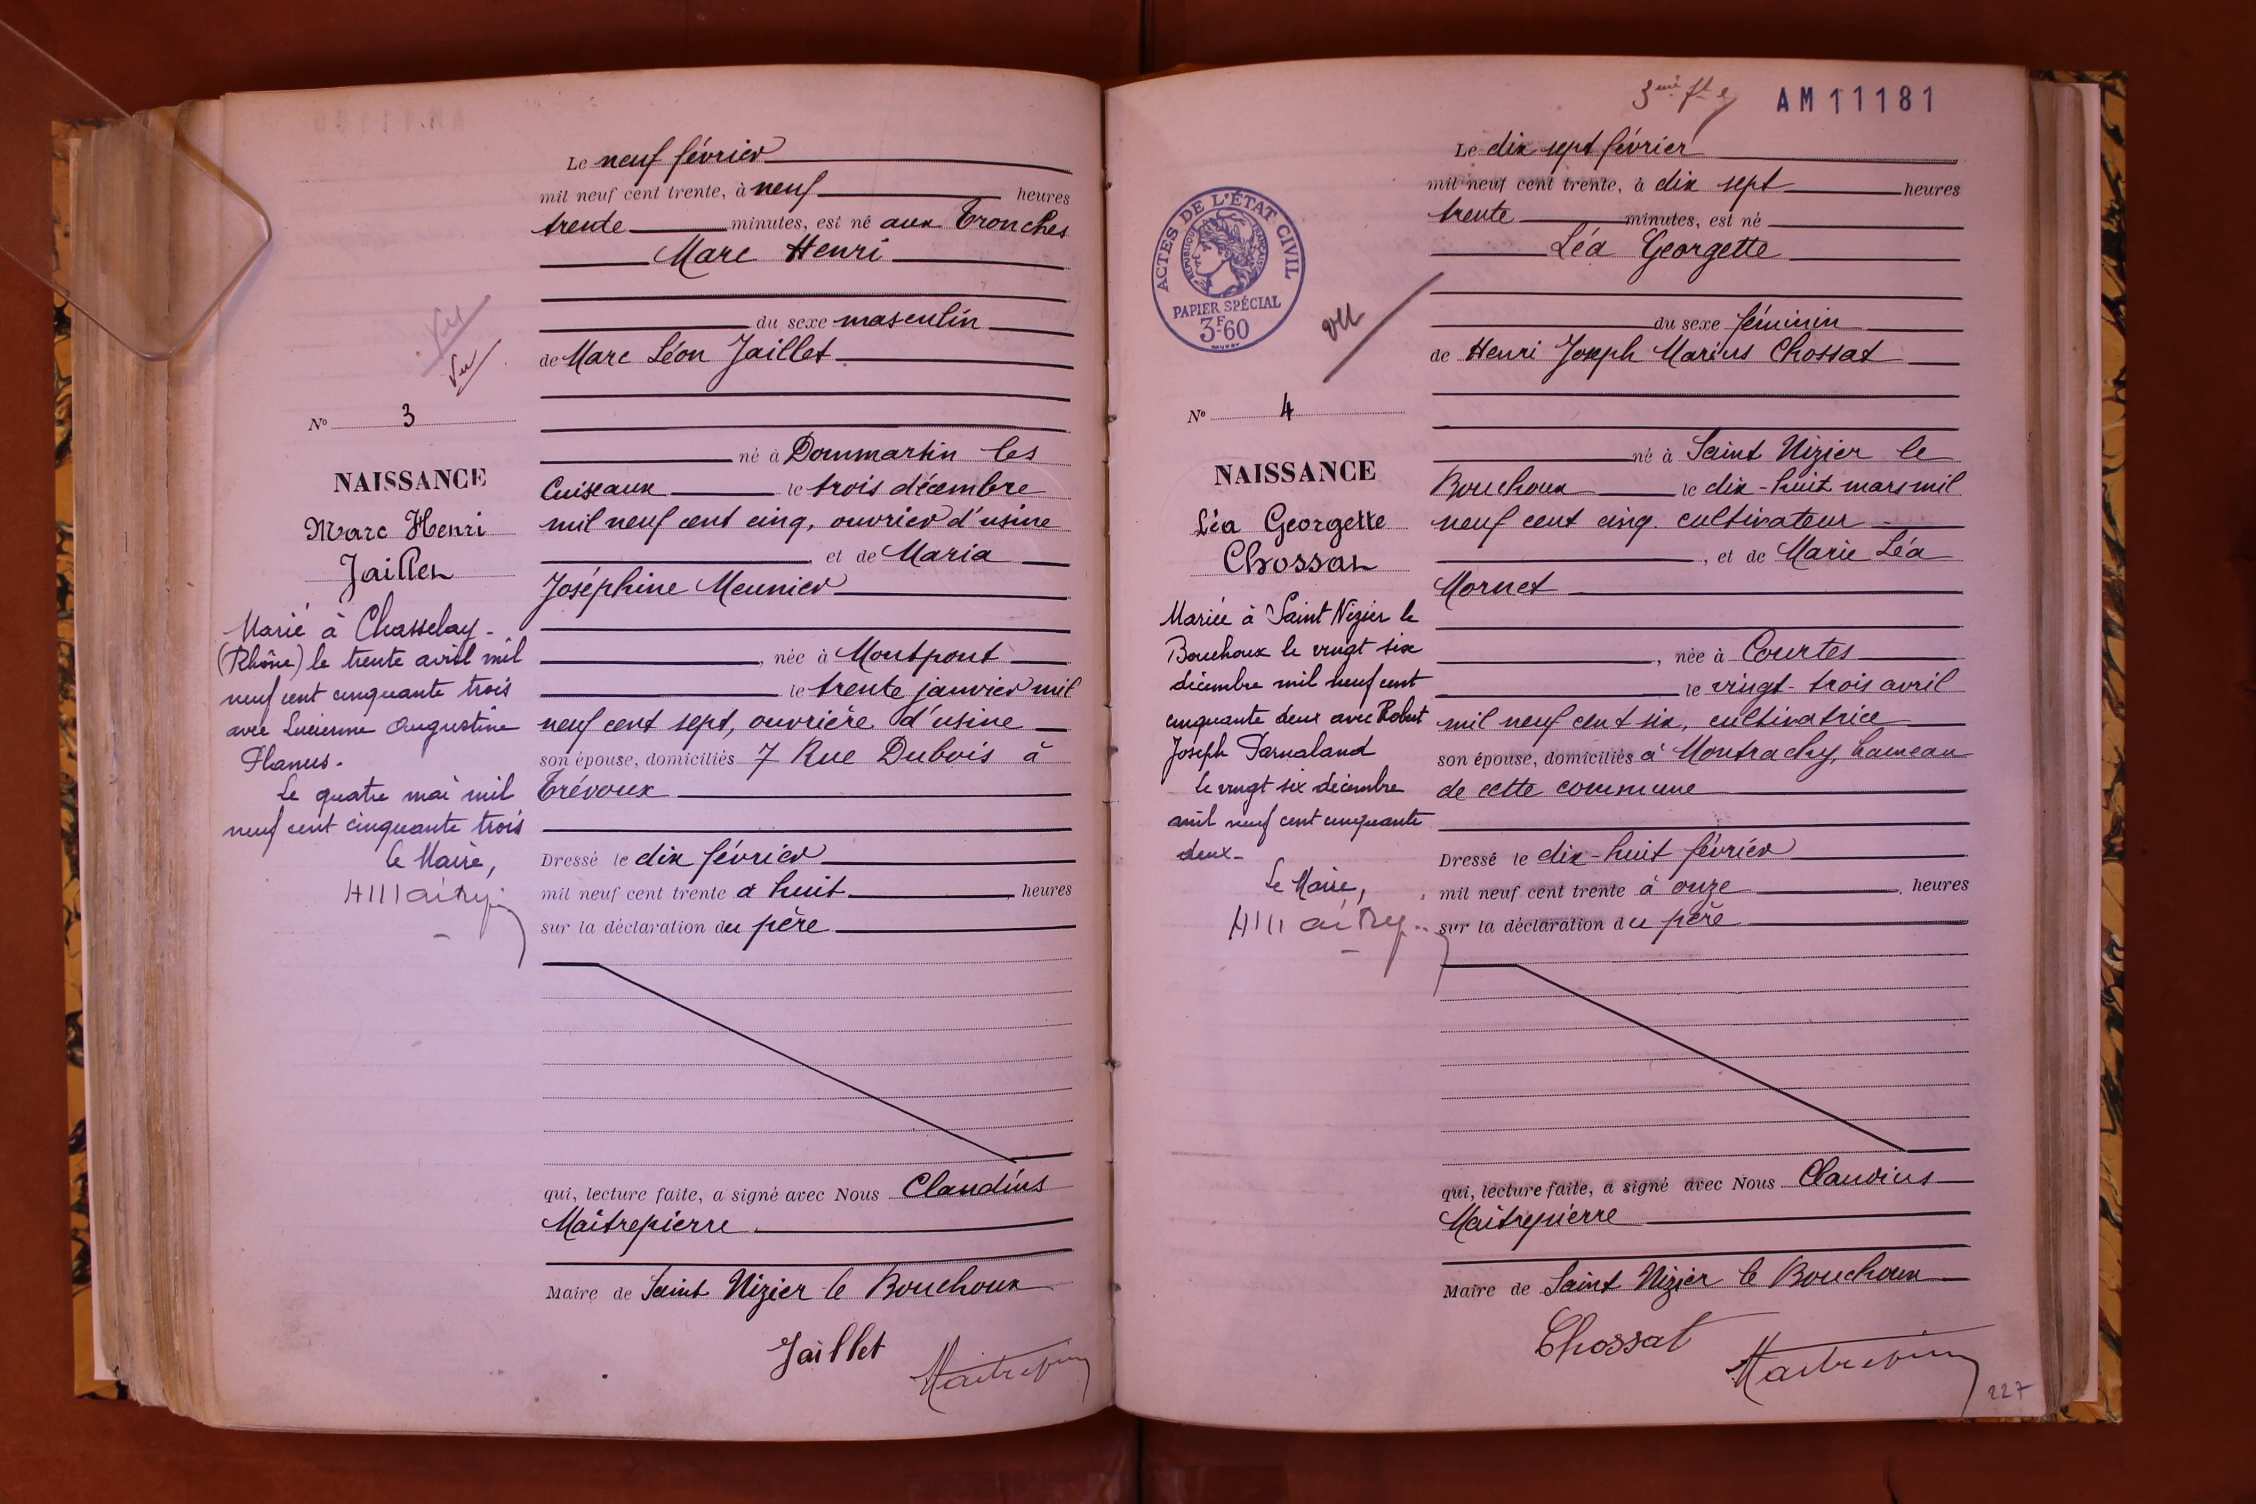 Le neuf février
mil neuf cent trente, à neuf heures
trente minutes, est né aux Tronches
Marc Henri
du sexe masculin
de Marc Léon Jaillet
né à Dommartin les
Cuiseaux le trois décembre
mil neuf cent cinq, ouvrier d'usine
et de Maria
Joséphine Meunier
, née à Montpont
le trente janvier mil
neuf cent sept, ouvrière d'usine
son épouse, domiciliés 7 Rue Dubois à
Trévoux
Dressé le dix février
mil neuf cent trente à huit heures
sur la déclaration du père
qui, lecture faite, a signé avec Nous Claudius
Maîtrepierre
Maire de Saint Nizier le Bouchoux
Jaillet
Vu
Vu
N° 3
NAISSANCE
Marc Henri
Jaillet
Marié à Chasselay -
(Rhône) le trente avril mil
neuf cent cinquante trois
avec Lucienne Augustine
Planus.
Le quatre mai mil
neuf cent cinquante trois
le Maire,
3ème ft
AM 11181
Le dix sept février
mil neuf cent trente, à dix sept heures
trente minutes, est né
Léa Georgette
du sexe féminin
de Henri Joseph Marius Chossat
né à Saint Nizier le
Bouchoux le dix-huit mars mil
neuf cent cinq. cultivateur
, et de Marie Léa
Mornet
, née à Courtes
le vingt-trois avril
mil neuf cent six, cultivatrice
son épouse, domiciliés à Montrachy, hameau
de cette commune
Dressé le dix-huit février
mil neuf cent trente à onze heures
sur la déclaration du père
qui, lecture faite, a signé avec Nous Claudius
Maîtrepierre
Maire de Saint Nizier le Bouchoux
Chossat
227
ACTES DE L'ÉTAT CIVIL
RÉPUBLIQUE FRANÇAISE
PAPIER SPÉCIAL
3F60
vu
N° 4
NAISSANCE
Léa Georgette
Chossat
Mariée à Saint Nizier le
Bouchoux le vingt six
décembre mil neuf cent
cinquante deux avec Robert
Joseph
le vingt six décembre
mil neuf cent cinquante
deux-
Le Maire,